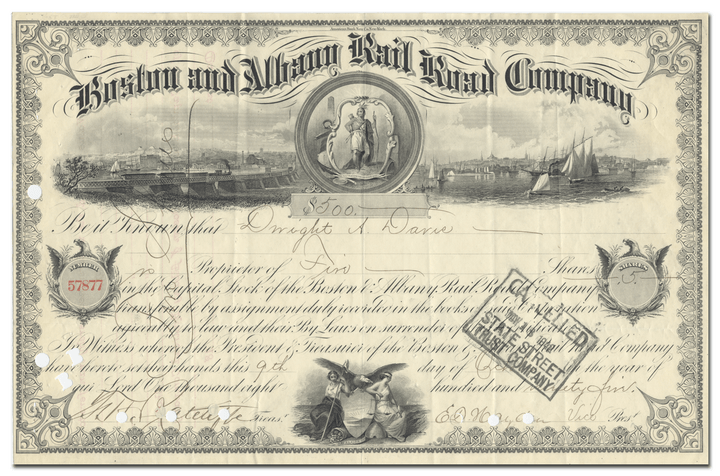 Boston and Albany Rail Road Company
$500.
Be it Known that Dwight F. Davis
is Proprietor of Five Shares
in the Capital Stock of the Boston & Albany Rail Road Company
transferable by assignment duly recorded in the books of the Corporation
agreeably to law and their By Laws on surrender of this
In Witness whereof the President & Treasurer of the Boston & Company
have hereto set their hands this 9th day of in the year of
our Lord One thousand eight hundred and
Treas. Vice Pres.
NUMBER
57877
SHARES
5
CANCELLED
STATE STREET
TRUST COMPANY